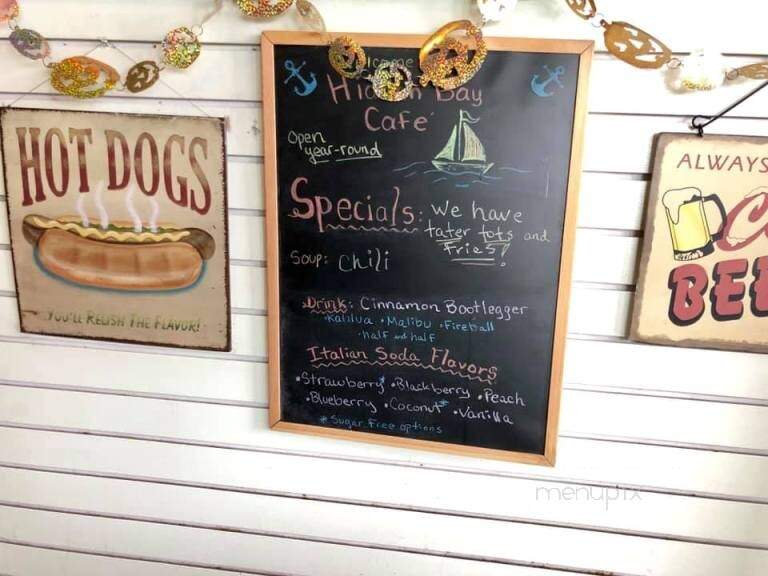 HOT DOGS
YOU'LL RELISH THE FLAVOR!
Bay
Cafe
Open
year-round
Specials: we have
tater tots and
fries!
Soup: Chili
Drink: Cinnamon Bootlegger
•Kahlua •Malibu •Fireball
•half and half
Italian Soda Flavors
•Strawberry* •Blackberry •Peach
•Blueberry •Coconut* •Vanilla
*Sugar Free options
ALWAYS
menupix